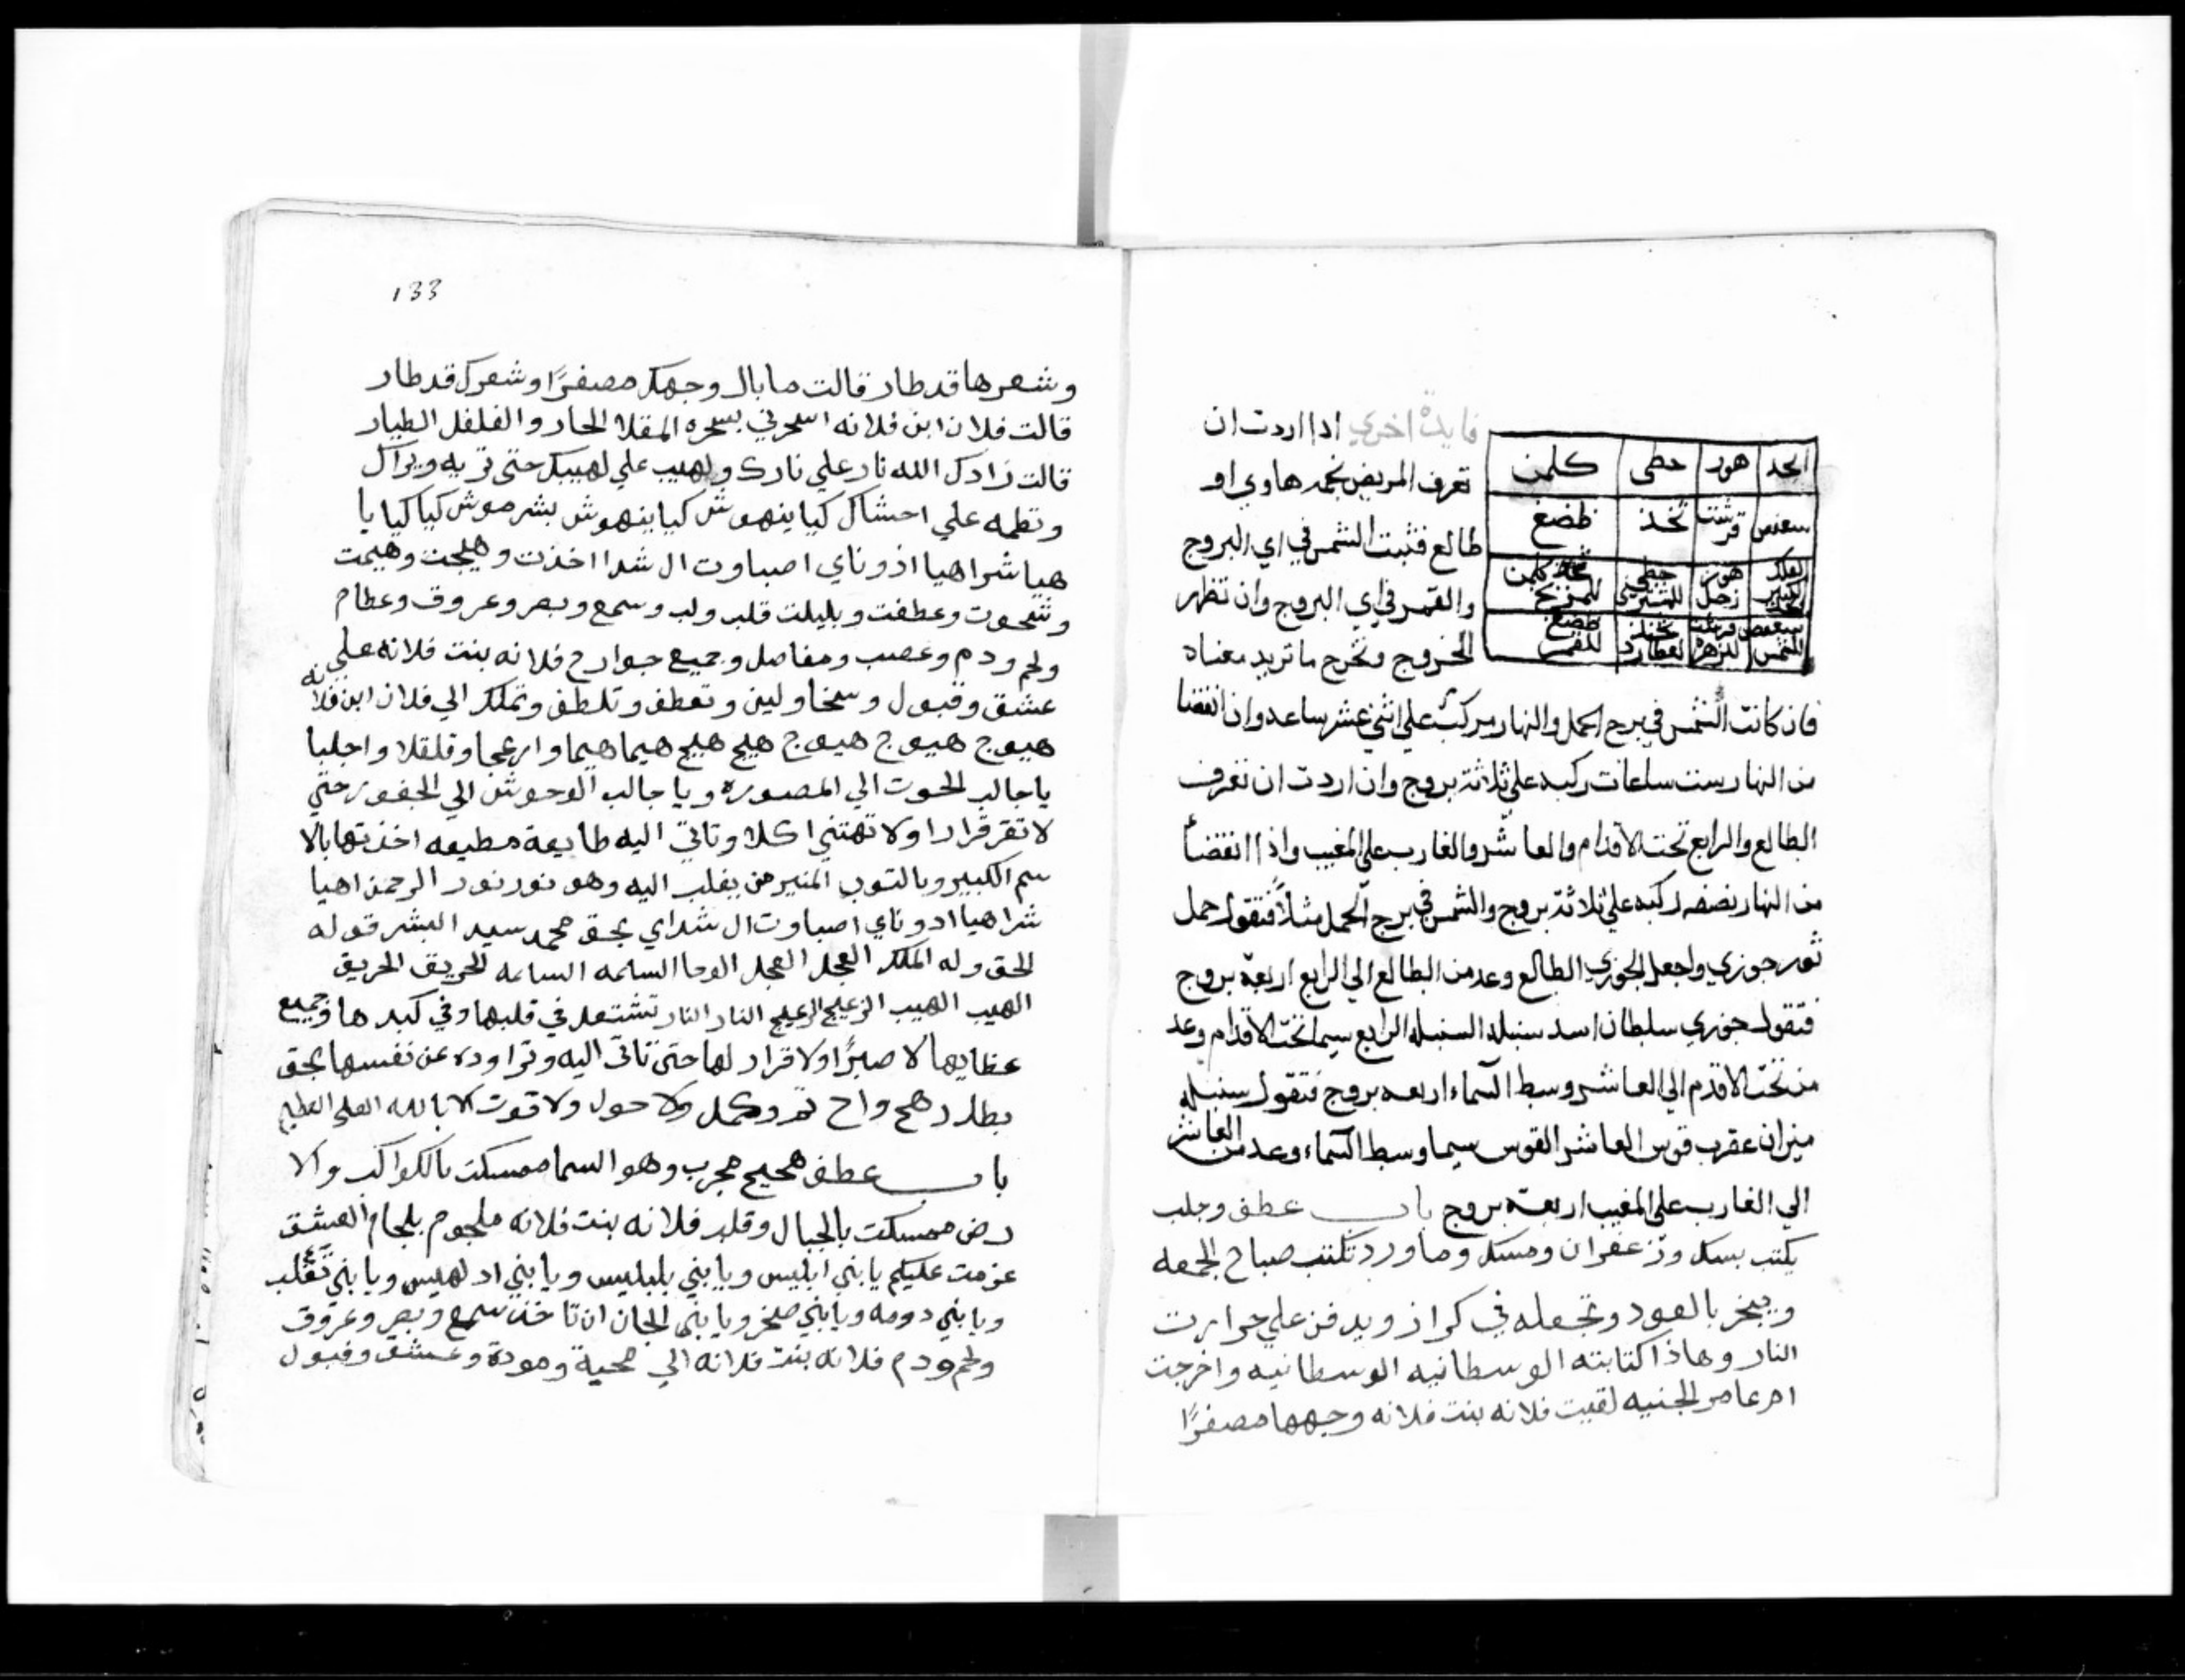 ابجد هوز حطي كلمن
سعفص قرشت ثخذ ضظغ
هوز زحل حطي للمشتري كلمن للمريخ
سعفص للشمس قرشت للزهره ثخذ لعطارد ضظغ للقمر
فايدة اخري اذا اردت ان
تعرف المريض نجمه هاوي او
طالع فثبت الشمس في اي البروج
والقمر في اي البروج وان تظهر
الخروج وتخرج ما تريد معناه
فان كانت الشمس في برج الحمل والنهار مركب علي اثني عشر ساعه وان انقضا
من النهار ست ساعات ركبه علي ثلاثة بروج وان اردت ان تعرف
الطالع والرابع تحت الاقدام والعاشر والغارب علي المغيب واذا انقضا
من النهار نصفه اركبه علي ثلاثة بروج والشمس في برج الحمل مثلاً فتقول حمل
ثور جوزي واجعل الجوزي الطالع وعد من الطالع الي الرابع اربعة بروج
فتقول جوزي سلطان اسد سنبله السنبله الرابع سيما تحت الاقدام وعد
من تحت الاقدم الي العاشر وسط السماء اربعه بروج فتقول سنبله
ميزان عقرب قوس العاشر القوس سيما وسط السماء وعد من العاشر
الي الغارب علي المغيب اربعة بروج باب عطف وجلب
يكتب بسك وزعفران ومسك وماورد تكتب صباح الجمعه
ويبخر بالعود وتجعله في كراز ويدفن علي حرارت
النار وهاذا كتابته الوسطانيه الوسطانيه واخرجت
ام عامر الجنيه لقيت فلانه بنت فلانه وجهها مصفرًا
133
وشعرها قد طار قالت ما بال وجهك مصفرًا وشعرك قد طار
قالت فلان ابن فلانه اسحرني بسحره المقلا الحار والفلفل الطيار
قالت زادك الله نار علي نارك ولهيب علي لهيبك حتى تريه ويراك
وتطمه علي احشاك كيا ينهوش كيا ينهوش بشرموش كيا كيا يا
هيا شراهيا اذوناي اصباوت ال شدا اخذت وهيجت وهيمت
وعطفت وبليلت قلب ولب وسمع وبصر وعروق وعظام
ولحم ودم وعصب ومفاصل وجميع جوارح فلانه بنت فلانه علي
عشق وقبول وسخا ولين وتعطف وتلطف وتملك الي فلان ابن فلانه
هيوج هيوج هيوج هيج هيج هيما هيما وارعجا وقلقلا واجلبا
يا جالب الحوت الي المصوره ويا جالب الوحوش الي الجفور حتي
لا تقر قرارا ولا تهتني اكلا وتاتي اليه طايعة مطيعه اخذتها بالا
سم الكبير وبالتوب المنير من يغلب اليه وهو نور نور الرحمن اهيا
شراهيا ادوناي اصباوت ال شداي بحق محمد سيد البشر قوله
الحق وله الملك العجل العجل الوحا الساعه الساعه الحريق الحريق
الهيب الهيب الزعيج الزعيج النار النار تشتعل في قلبها وفي كبدها وجميع
عظايها لا صبرًا ولا قرار لها حتى تاتي اليه وتراوده عن نفسها بحق
بطد زهج واح تم وكمل ولا حول ولا قوت الا بالله العلي العظيم
باب عطف صحيح مجرب وهو السما ممسكت بالكواكب والا
رض ممسكت بالجبال وقلب فلانه بنت فلانه ملجوم بلجام العشق
عزمت عليكم يا بني ابليس ويا بني بلبليس ويا بني ادلهيس ويا بني تغلب
ويا بني دومه ويا بني صخر ويا بني الجان ان تاخذ سمع وبصر وعروق
ولحم ودم فلانه بنت فلانه الي محبة ومودة وعشق وقبول